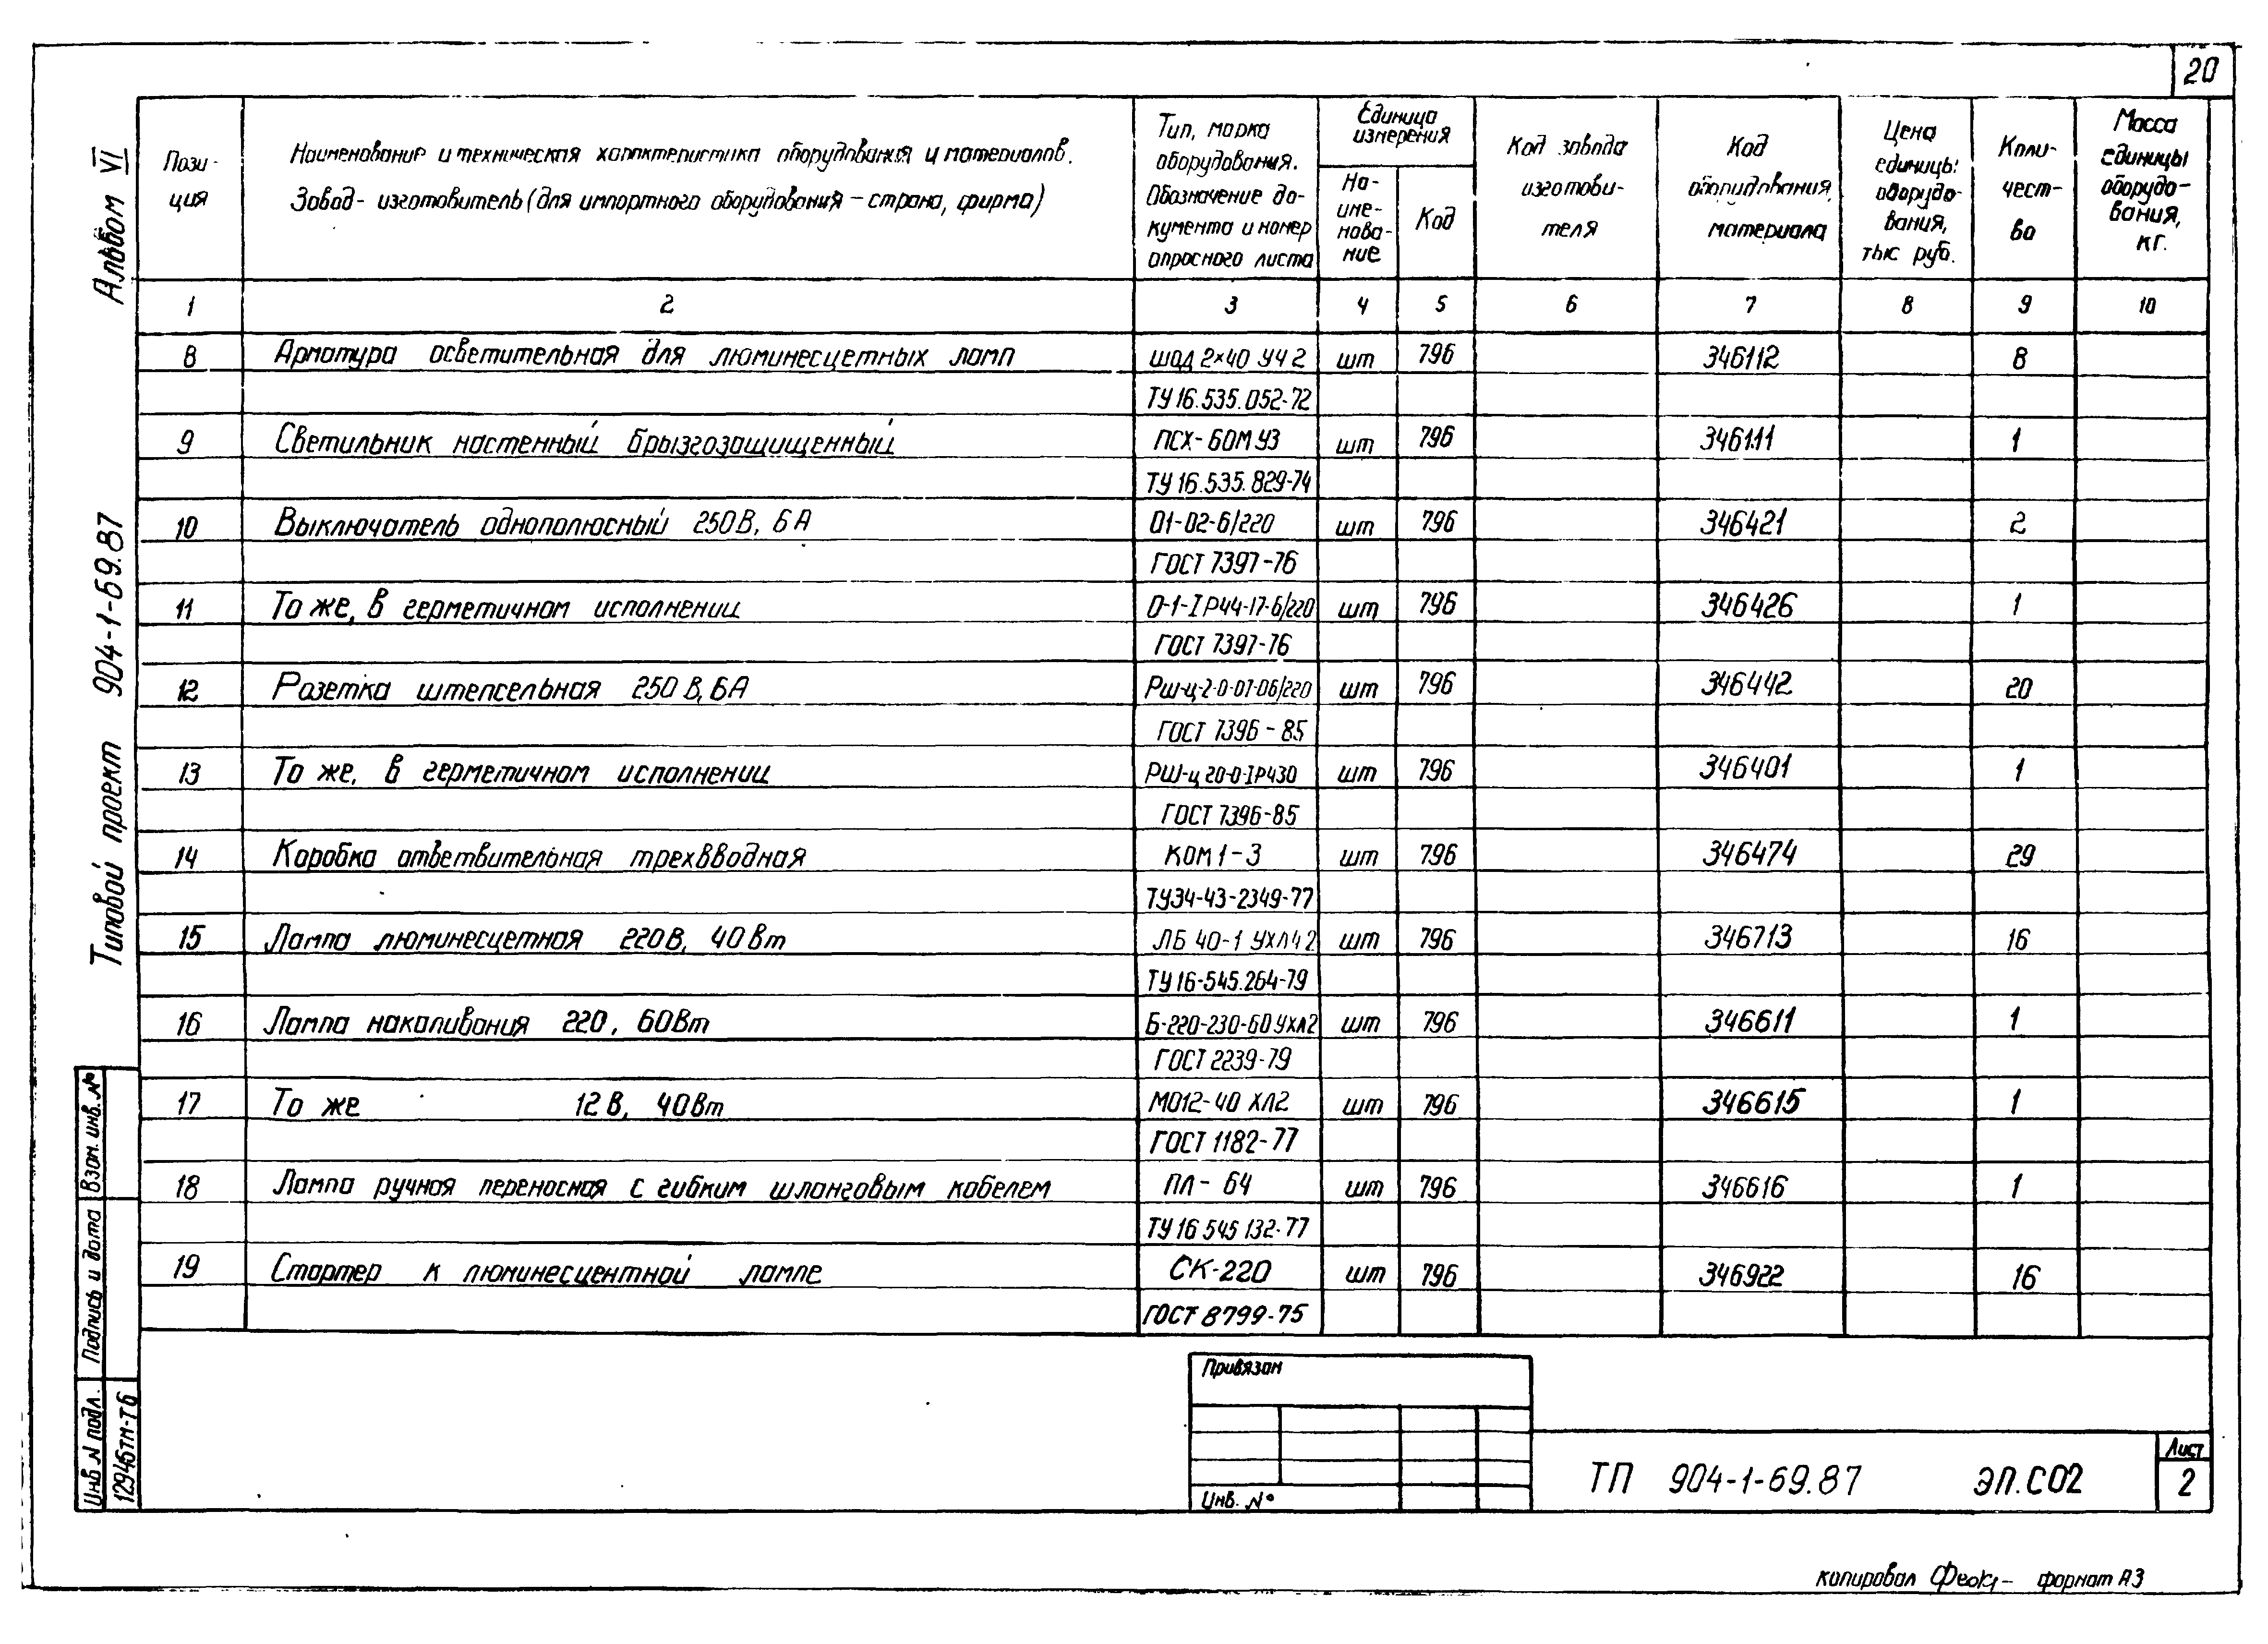 20
Альбом VI
Типовой проект 904-1-69.87
Пози-
ция
Наименование и техническая характеристика оборудования и материалов.
Завод- изготовитель (для импортного оборудования – страна, фирма)
Тип, марка
оборудования.
Обозначение до-
кумента и номер
опросного листа
Единица
измерения
На-
име-
нова-
ние
Код
Код завода
изготови-
теля
Код
оборудования,
материала
Цена
единицы
оборудо-
вания,
тыс руб.
Коли-
чест-
во
Масса
единицы
оборудо-
вания,
кг.
1 2 3 4 5 6 7 8 9 10
8 Арматура осветительная для люминесцетных ламп ШОД 2×40 УЧ 2 шт 796 346112 8
ТУ 16.535.052-72
9 Светильник настенный брызгозащищенный ПСХ-60М У3 шт 796 346111 1
ТУ 16.535.829-74
10 Выключатель однополюсный 250 В, 6 А 01-02-6/220 шт 796 346421 2
ГОСТ 7397-76
11 То же, в герметичном исполнении 0-1-IР44-17-6/220 шт 796 346426 1
ГОСТ 7397-76
12 Розетка штепсельная 250 В, 6А РШ-ц-2-0-07-06/220 шт 796 346442 20
ГОСТ 7396-85
13 То же, в герметичном исполнении РШ-ц 20-0-IР430 шт 796 346401 1
ГОСТ 7396-85
14 Коробка ответвительная трехвводная КОМ 1-3 шт 796 346474 29
ТУ34-43-2349-77
15 Лампа люминесцетная 220В, 40Вт ЛБ 40-1 УХЛ4 2 шт 796 346713 16
ТУ 16-545.264-79
16 Лампа накаливания 220, 60Вт Б-220-230-60 УХЛ2 шт 796 346611 1
ГОСТ 2239-79
17 То же 12 В, 40Вт МО12-40 ХЛ2 шт 796 346615 1
ГОСТ 1182-77
18 Лампа ручная переносная с гибким шланговым кабелем ПЛ-64 шт 796 346616 1
ТУ 16 545 132-77
19 Стартер к люминесцентной лампе СК-220 шт 796 346922 16
ГОСТ 8799-75
Взам. инв. №
Подпись и дата
Инв N подл.
12946тм-т6
Привязан
Инв. №
ТП 904-1-69.87 ЭП.С02
Лист
2
копировал формат А3